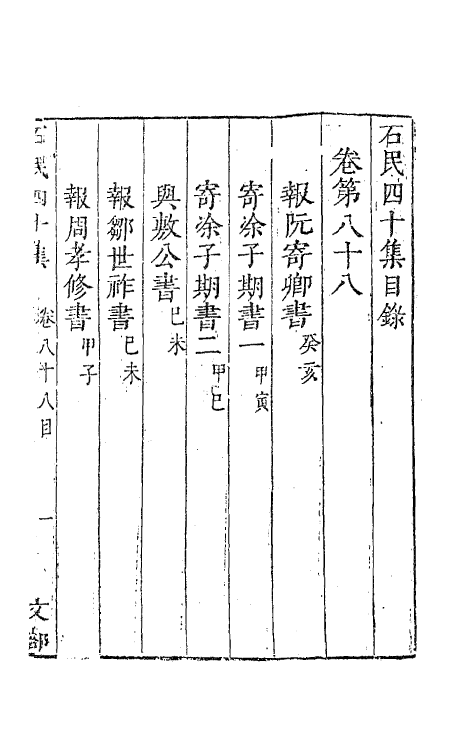 石民四十集目錄
卷第八十八
報阮寄卿書癸亥
寄涂子期書一甲寅
寄涂子期書二甲巳
與敷公書己未
報鄒世祚書己未
報周孝修書甲子
石民四十集 卷八十八目 一 文部